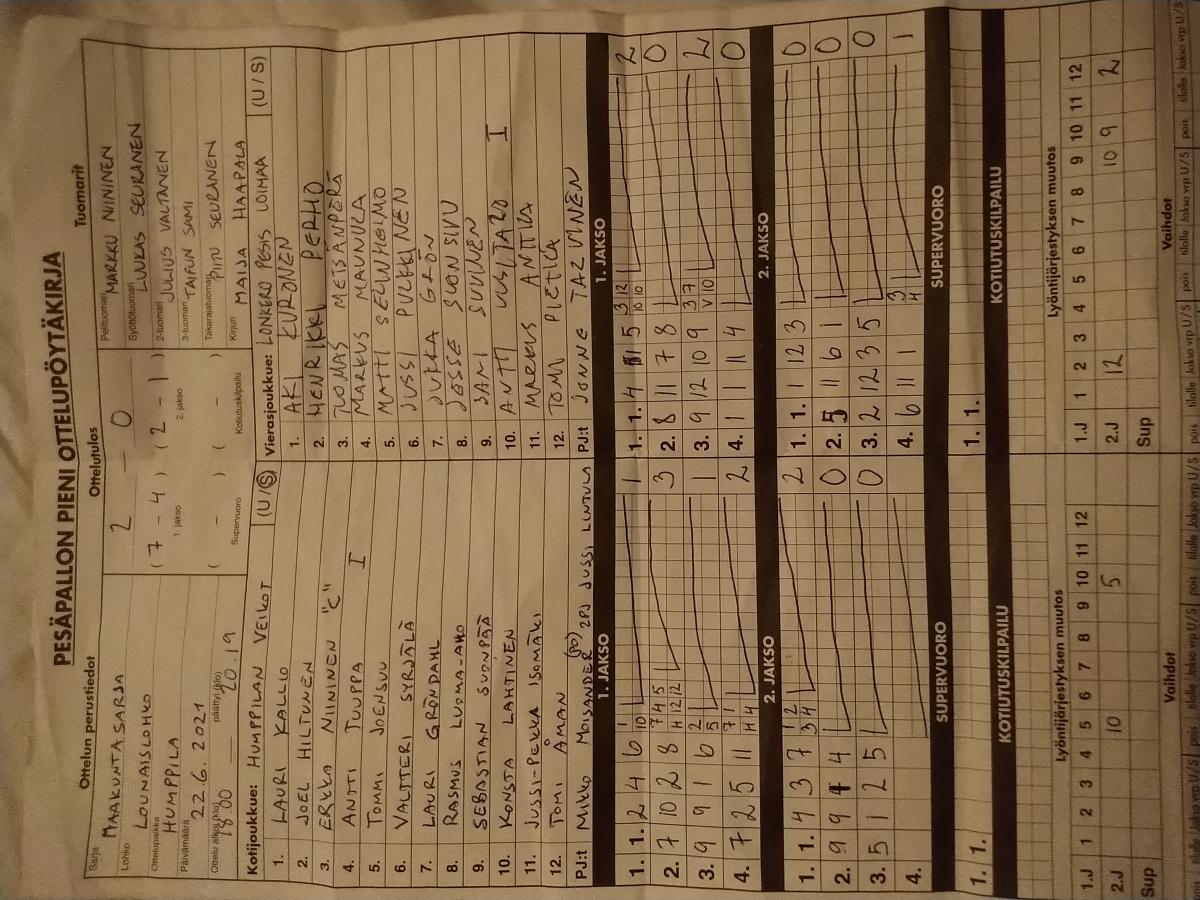 PESÄPALLON PIENI OTTELUPÖYTÄKIRJA
Ottelun perustiedot
Sarja
MAAKUNTASARJA
Lohko
LOUNAISLOHKO
Ottelupaikka
HUMPPILA
Päivämäärä
22.6.2021
Ottelu alkoi (klo) päättyi (klo)
18.00 20.19
Ottelutulos
2 – 0
( 7 – 4 ) ( 2 – 1 )
1. jakso 2. jakso
( – ) ( – )
Supervuoro Kotiutuskilpailu
Tuomarit
Pelituomari MARKKU NIININEN
Syöttötuomari LUUKAS SEURANEN
2-tuomari JULIUS VALTANEN
3-tuomari TAIFUN SAMI
Takarajatuomari PIITU SEURANEN
Kirjuri MAIJA HAAPALA
Kotijoukkue: HUMPPILAN VEIKOT (U/S)
1. LAURI KALLIO
2. JOEL HILTUNEN
3. ERKKA NIININEN "C"
4. ANTTI TUUPPA I
5. TOMMI JOENSUU
6. VALTTERI SYRJÄLÄ
7. LAURI GRÖNDAHL
8. RASMUS LUOMA-AHO
9. SEBASTIAN SUONPÄÄ
10. KONSTA LAHTINEN
11. JUSSI-PEKKA ISOMÄKI
12. TOMI ÅMAN
PJ:t MIKKO MOISANDER (PJ) 2PJ JUSSI LINTULA
Vierasjoukkue: LONKERO PESIS LOIMAA (U/S)
1. AKI KURONEN
2. HENRIKKI PERHO
3. TUOMAS METSÄNPERÄ
4. MARKUS MAUNULA
5. MATTI SELINHEIMO
6. JUSSI PULKKINEN
7. JUKKA GRÖN
8. JESSE SUONSIVU
9. SAMI SUVINEN
10. ANTTI UUSITALO I
11. MARKUS ANTIKA
12. TOMI PIETILÄ
PJ:t JONNE TARVINEN
1. JAKSO
1. 1. 2 4 6 1 10 1
2. 7 10 2 8 7 4 5 11 12 12 3
3. 9 9 1 6 2 5 1
4. 7 2 5 11 7 1 11 4 2
1. JAKSO
1. 1. 4 11 5 3 12 10 10 2
2. 8 11 7 8 0
3. 9 12 10 9 3 7 V 10 2
4. 1 1 11 4 0
2. JAKSO
1. 1. 4 3 7 1 2 3 4 2
2. 9 9 4 4 0
3. 5 1 2 5 0
4.
2. JAKSO
1. 1. 1 12 3 0
2. 5 11 6 1 0
3. 2 12 3 5 0
4. 6 11 1 3 4 1
SUPERVUORO
1. 1.
SUPERVUORO
1. 1.
KOTIUTUSKILPAILU
KOTIUTUSKILPAILU
Lyöntijärjestyksen muutos
1 2 3 4 5 6 7 8 9 10 11 12
1.J
2.J 10 5
Sup
Lyöntijärjestyksen muutos
1 2 3 4 5 6 7 8 9 10 11 12
1.J
2.J 12 10 9 2
Sup
Vaihdot
Vaihdot
pois tilalle Jakso vrp U/S